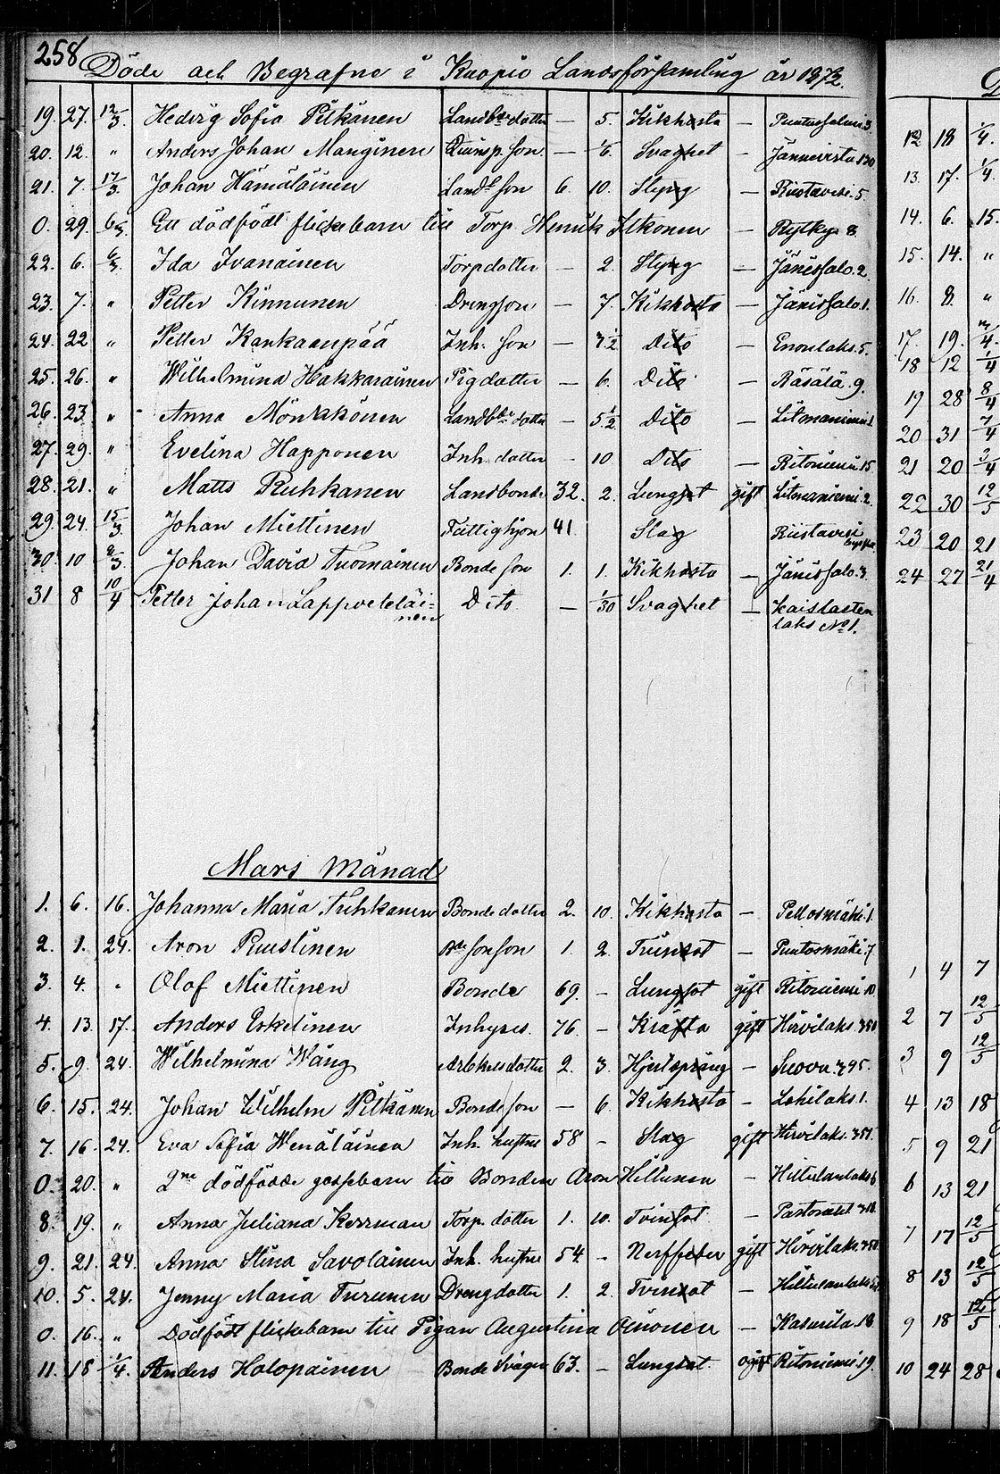 258 Döde och Begrafne i Kuopio Landsförsamling år 1872.
19. 27. 12/3. Hedvig Sofia Pitkänen Landbdr dotter — 5. Kikhosta — 3.
20. 12. " Anders Johan Manginen son — Svaghet — Jännevirta
21. 7. 17/3. Johan Hämäläinen Landb son 6. 10. Slag — Riistavesi. 5.
0. 29. Ett dödfödt flickebarn till Torp. Henrik Itkonen — Rytky 8
22. 6. Ida Ivanainen Torpdotter — 2. Slag — Jänissalo. 2.
23. 7. " Petter Kinnunen Drengson — 7. Kikhosta — Jänissalo 1.
24. 22 " Petter Kankaanpää Inh. son — 7 1/2 Dito — Enonlaks. 5.
25. 26. " Wilhelmina Hakkarainen Pigdotter — 6. Dito — Räsälä 9.
26. 23. " Anna Mönkkönen Landbdr dotter — 5 1/2 Dito — Litmaniemi
27. 29. " Evelina Happonen Inh dotter — 10 Dito — Ritoniemi 15.
28. 21. " Matts Ruhkanen Landbonde 32. 2. Lungsot gift Litmaniemi 2.
29. 24. 15/3 Johan Miettinen Fattighjon 41. Slag Riistavesi
30. 10 Johan David Tuomainen Bonde son 1. 1. Kikhosta — Jänissalo. 3.
31 8 10/4 Petter Johan Lappveteläi-
nen Dito — 1/30 Svaghet — Kaislasten
laks No 1.
Mars Månad
1. 6. 16. Johanna Maria Tuhkanen Bonde dotter 2. 10. Kikhosta — Pellosmäki 1
2. 1. 24. Aron Puustinen sonson 1. 2. Tvinsot — Puutosmäki 7
3. 4. " Olof Miettinen Bonde 69. — Lungsot gift Ritoniemi
4. 13. 17. Anders Eskelinen Inhyses. 76. — Kräfta gift Hirvilaks.
5. 9. 24. Wilhelmina Wäng dotter 2. 3. Hjertspräng —
6. 15. 24. Johan Wilhelm Pitkänen Bonde son — 6. Kikhosta — Lohilaks 1.
7. 16. 24. Eva Sofia Wenäläinen Inh. hustru 58 — Slag gift Hirvilaks.
0. 20. " 2ne dödfödde gossebarn till Bonden Aron Hiltunen — Hiltulanlaks 6
8. 19. " Anna Juliana Korrman Torp. dotter 1. 10. Tvinsot —
9. 21. 24. Anna Stina Savolainen Inh. hustru 54 — Nerffeber gift Hirvilaks
10. 5. 24. Jenny Maria Turunen Drengdotter 1. 2. Tvinsot — Hiltulanlaks
0. 16. " Dödfödt flickebarn till Pigan Augustina Oinonen — Kasurila 18
11. 18 1/4. Anders Holopainen Bonde Svåger 63. — Lungsot ogift Ritoniemi 19.
D
12 18 1/4.
13. 17.
14. 6. 15.
15. 14. "
16. 8. "
17. 19.
18 12 1/4
19 28 8/4
20 31 7/4
21 20
22 30 12/5
23 20 21
24 27 21/4
1 4 7
2 7 12/5
3 9 12/5
4 13 18
5 9 21
6 13 21
7 17 12/5
8 13 12/5
9 18 12/5
10 24 28